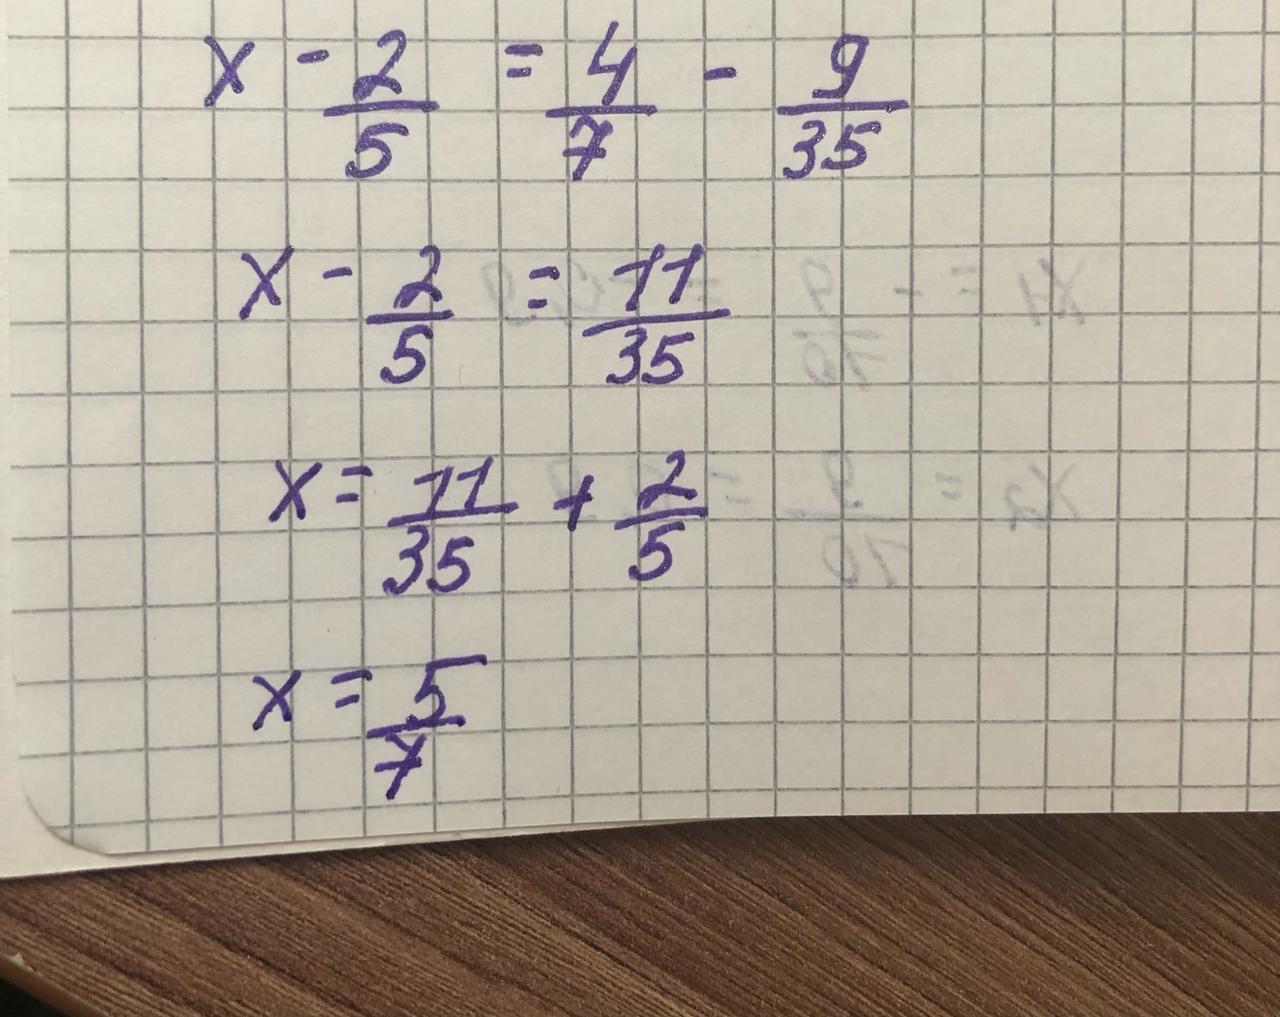 x - 2/5 = 4/7 - 9/35
x - 2/5 = 11/35
x = 11/35 + 2/5
x = 5/7